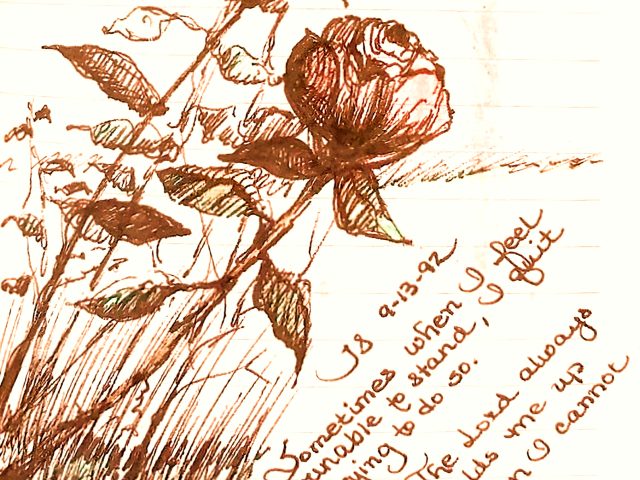 JS 9-13-92
Sometimes when I feel
unable to stand, I quit
trying to do so.
The Lord always
me up
I cannot